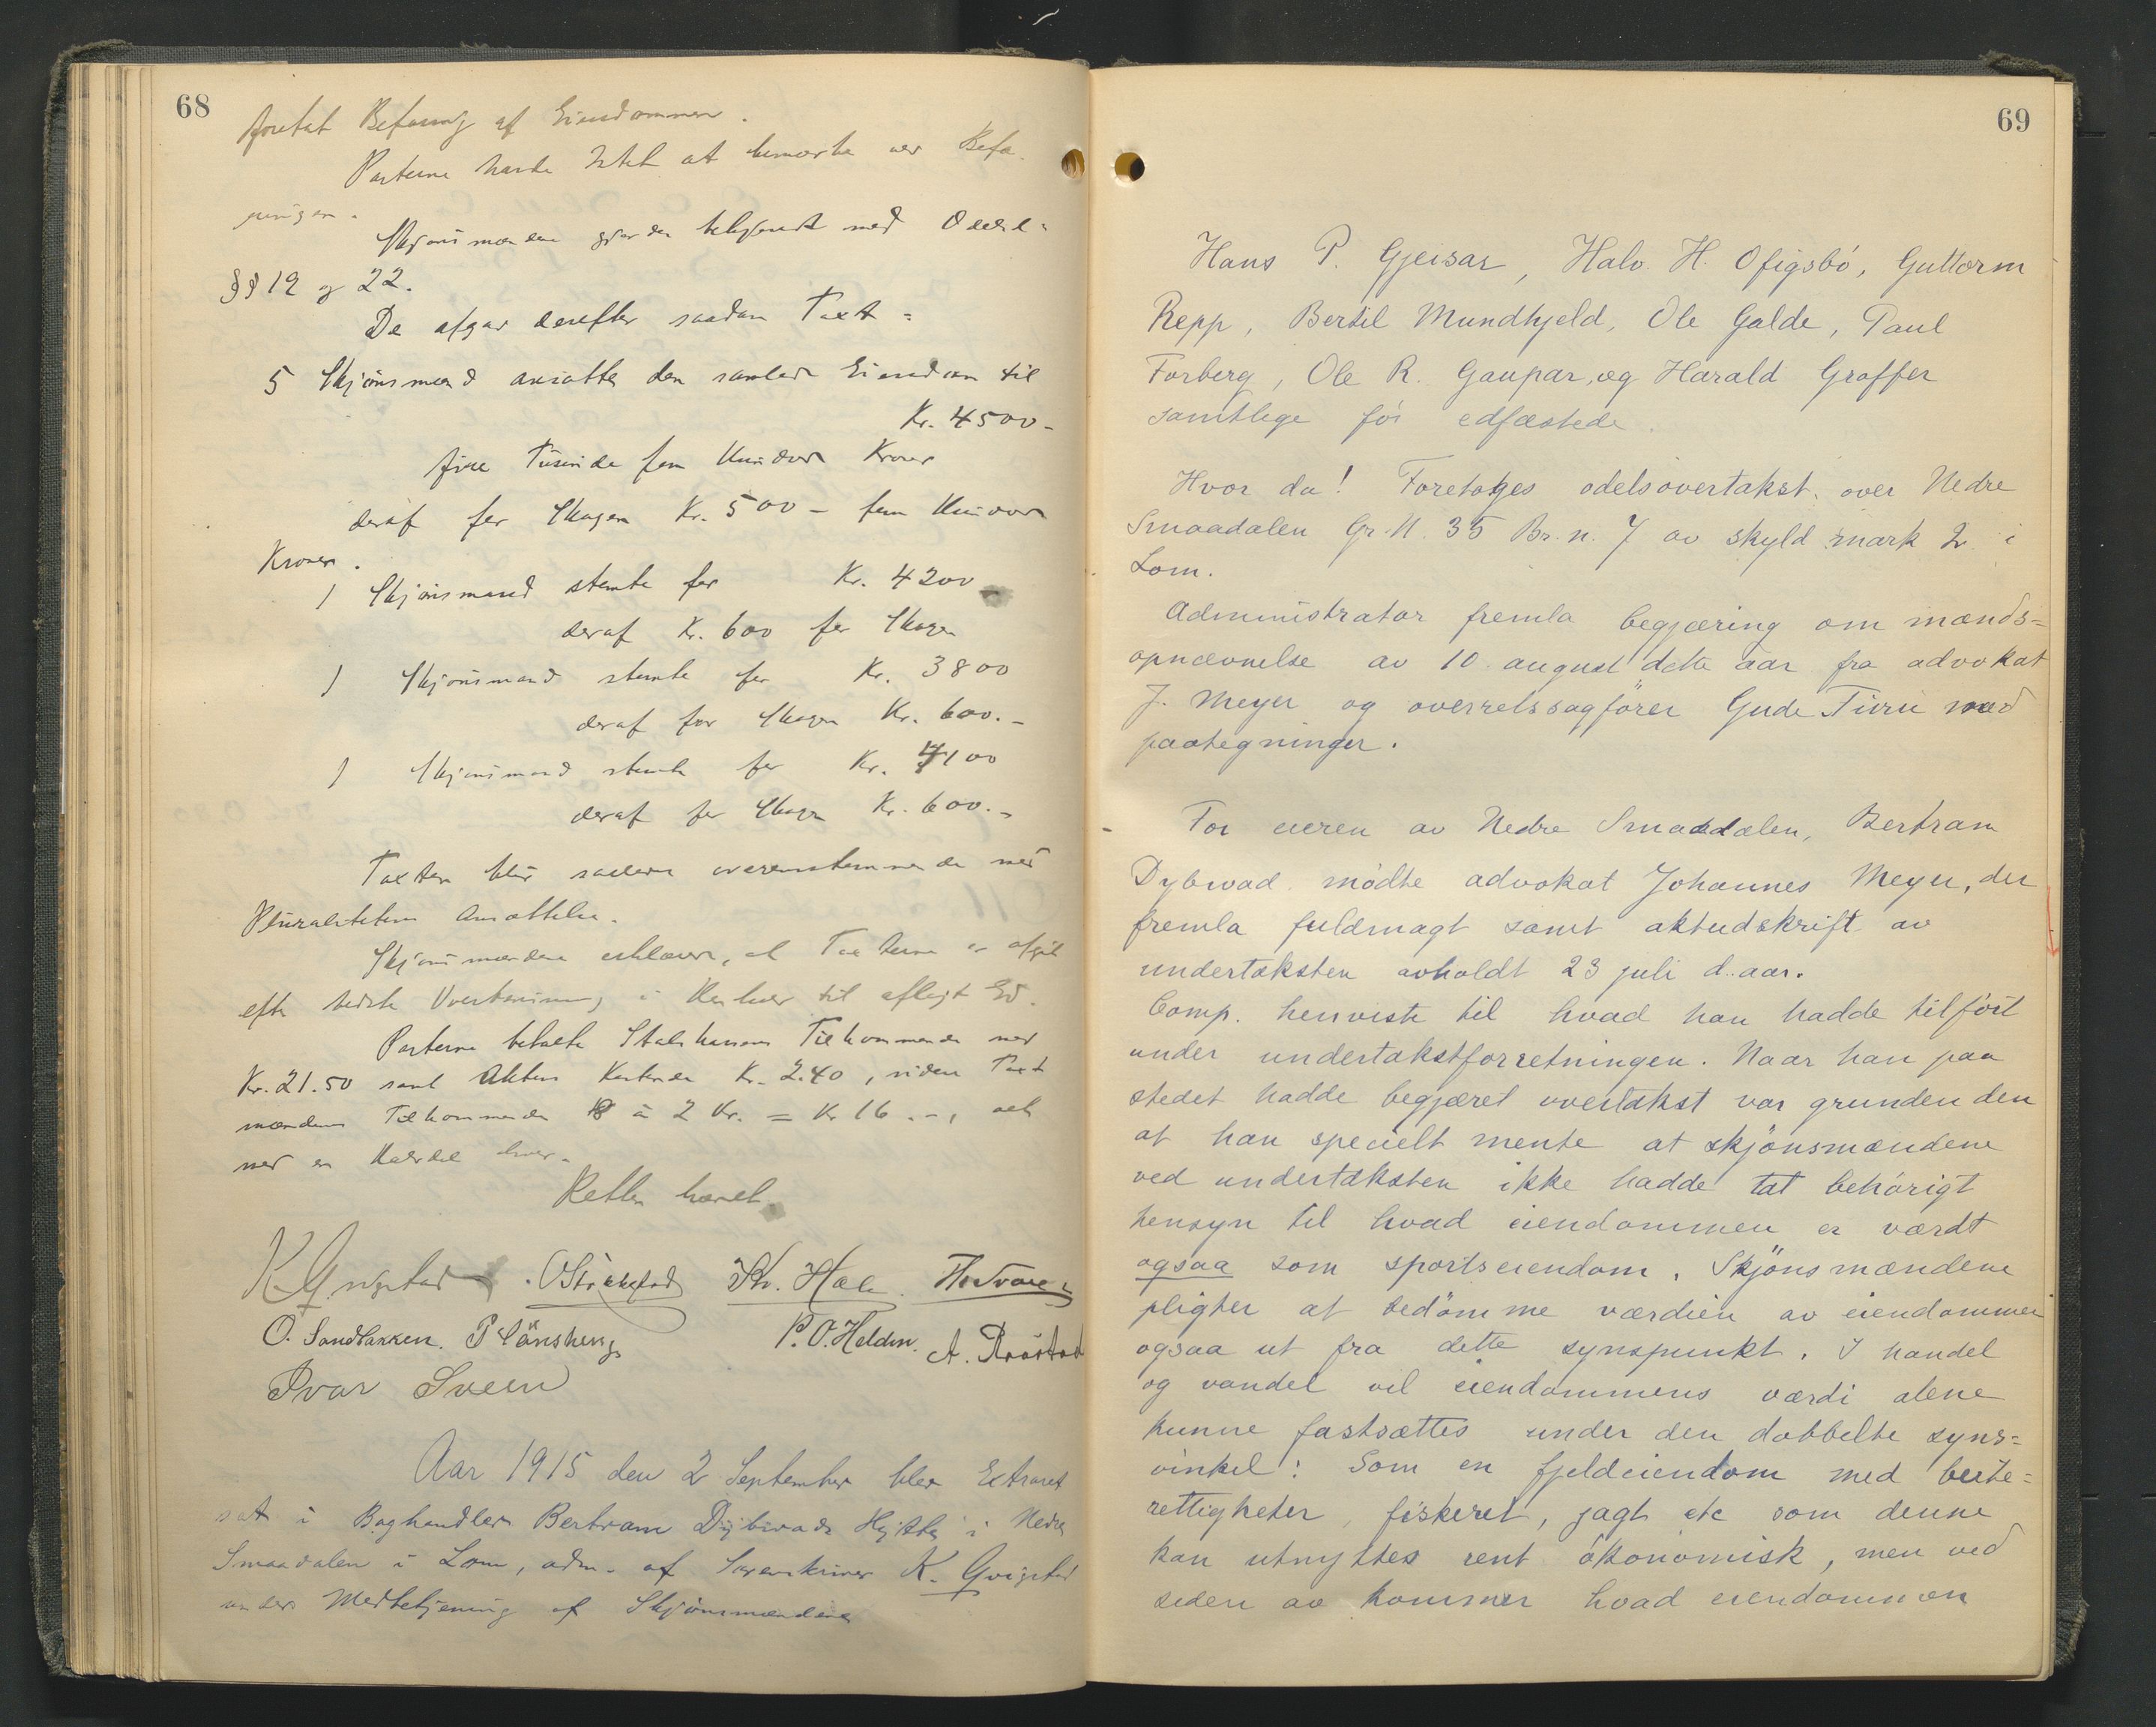 68
foretat Befaring af Eiendommen.
Parterne havde Intet at bemærke ved Befa-
ringen.
Skjønsmændene gjordes bekjendt med Odelsl.
§§ 19 og 22.
De afgav derefter saadan Taxt:
5 Skjønsmænd ansatte den samlede Eiendom til
Kr. 4500-
fire Tusinde fem Hundre Kroner
deraf for Skogen Kr. 500 - fem Hundre
Kroner.
1 Skjønsmand stemte for Kr. 4200
deraf Kr. 600 for Skogen
1 Skjønsmand stemte for Kr. 3800
deraf for Skogen Kr. 600.-
1 Skjønsmand stemte for Kr. 4100
deraf for Skogen Kr. 600.-
Taxten blir saaledes overensstemmende med
Pluralitetens Ansættelse.
Skjønsmændene erklærer, at Taxterne er afgit
efter bedste Overbevisning i Henhold til aflagt Ed.
Parterne betalte Statskassens Tilkommende med
Kr. 21.50 samt Aktens Kostende Kr. 2.40, siden Taxt
mændenes Tilkommende 8 á 2 Kr. = Kr 16.-, alt
med en Halvdel hver.
Retten hævet.
K Gvigstad O Strekstad Kr. Hole
O. Sandbakken. P. O. Helden. A. Prøstad
Ivar Sveen
Aar 1915 den 2 September blev Extraret
sat i Boghandler Bertram Dybwads Hytte i Nedre
Smaadalen i Lom, adm. af Sorenskriver K. Gvigstad
under Medbetjening af Skjønsmændene
69
Hans P. Gjeisar, Halv. H. Ofigsbö, Guttorm
Repp, Bertil Mundhjeld, Ole Galde, Paul
Forberg, Ole R. Gaupar, og Harald Graffer
samtlege før edfæstede.
Hvor da! Foretoges odelsovertakst over Nedre
Smaadalen Gr. N. 35 Br. n. 7 av skyld mark 2 i
Lom.
Administrator fremla begjæring om mænds=
opnævnelse av 10. august dette aar fra advokat
J. Meyer og overretssagfører Gude Tiurii med
paategninger.
For eieren av Nedre Smaadalen, Bertram
Dybwad mödte advokat Johannes Meyer, der
fremla fuldmagt samt aktudskrift av
undertaksten avholdt 23 juli d. aar.
Comp. henviste til hvad han hadde tilført
under undertakstforretningen. Naar han paa
stedet hadde begjæret overtakst var grunden den
at han specielt mente at skjönsmændene
ved undertaksten ikke hadde tat behörigt
hensyn til hvad eiendommen er værdt
ogsaa som sportseiendom. Skjönsmændene
pligter at bedömme værdien av eiendommen
ogsaa ut fra dette synspunkt. I handel
og vandel vil eiendommens værdi alene
kunne fastsættes under den dobbelte syns=
vinkel: Som en fjeldeiendom med beite=
rettigheter, fiskeret, jagt etc som denne
kan utnyttes rent økonomisk, men ved
siden av kommer hvad eiendommen